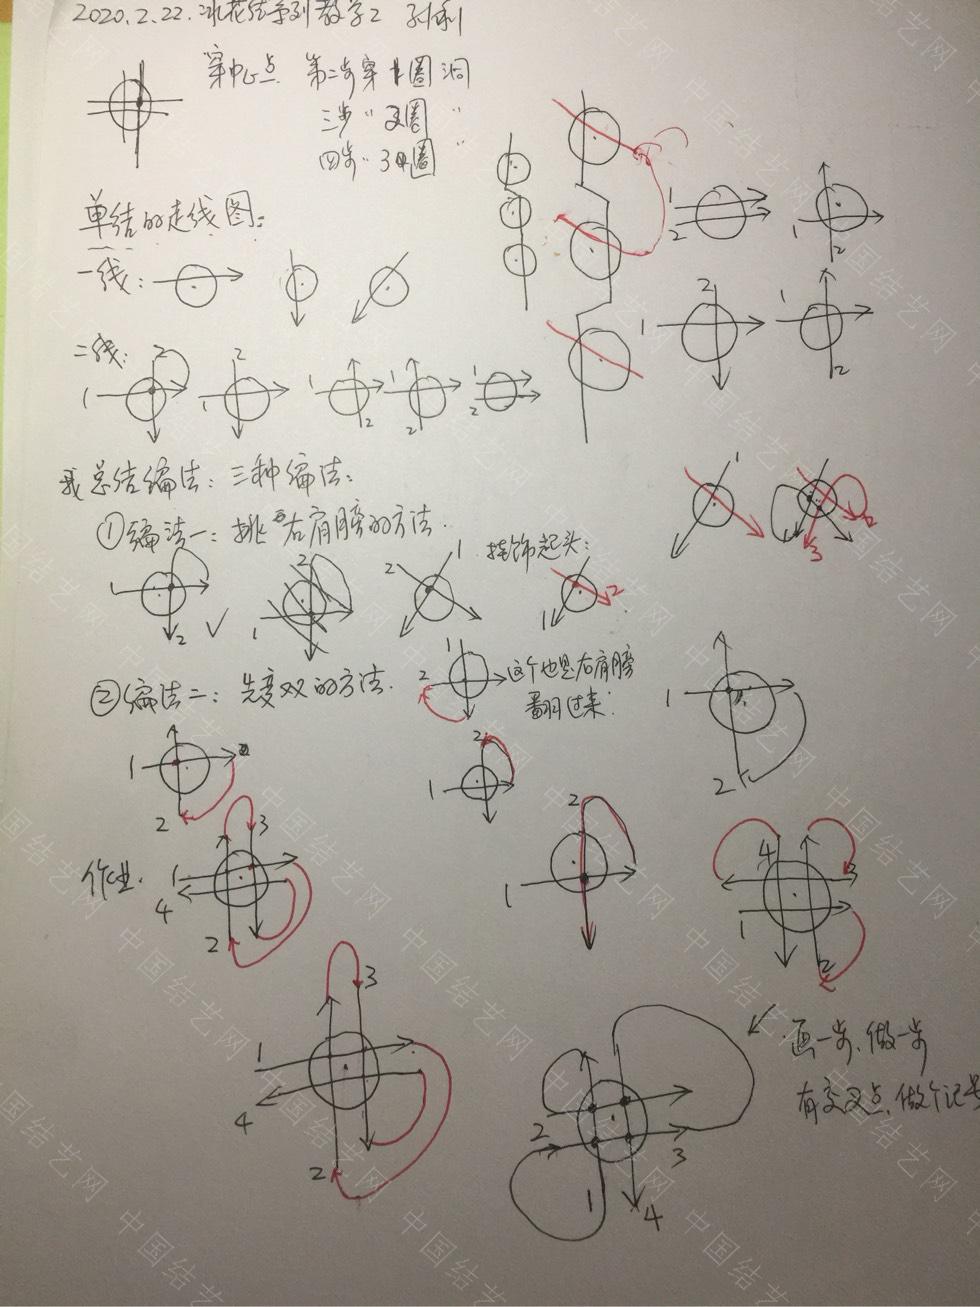 2020.2.22.冰花结系列教学2 孙利
穿中心点 第二步穿1圈洞
三步〃2圈〃
四步〃3圈〃
单结的走线图:
一线:
二线:
1 2
1 2
1 2
1 2
1 2
1 2
1 2
1 2
1 2
我总结编法: 三种编法:
①编法一: 挑 右肩膀的方法.
挂饰起头:
1 2
1
1 2
1 2
1
2 3
②编法二: 先变双的方法.
1 2
这个也是右肩膀
翻过来:
1 2
1 2
1 2
作业.
1 2 3 4
1 2
1 2 3 4
1 2 3 4
1 2 3 4
画一步、做一步
有交叉点、做个记号
中国结艺网